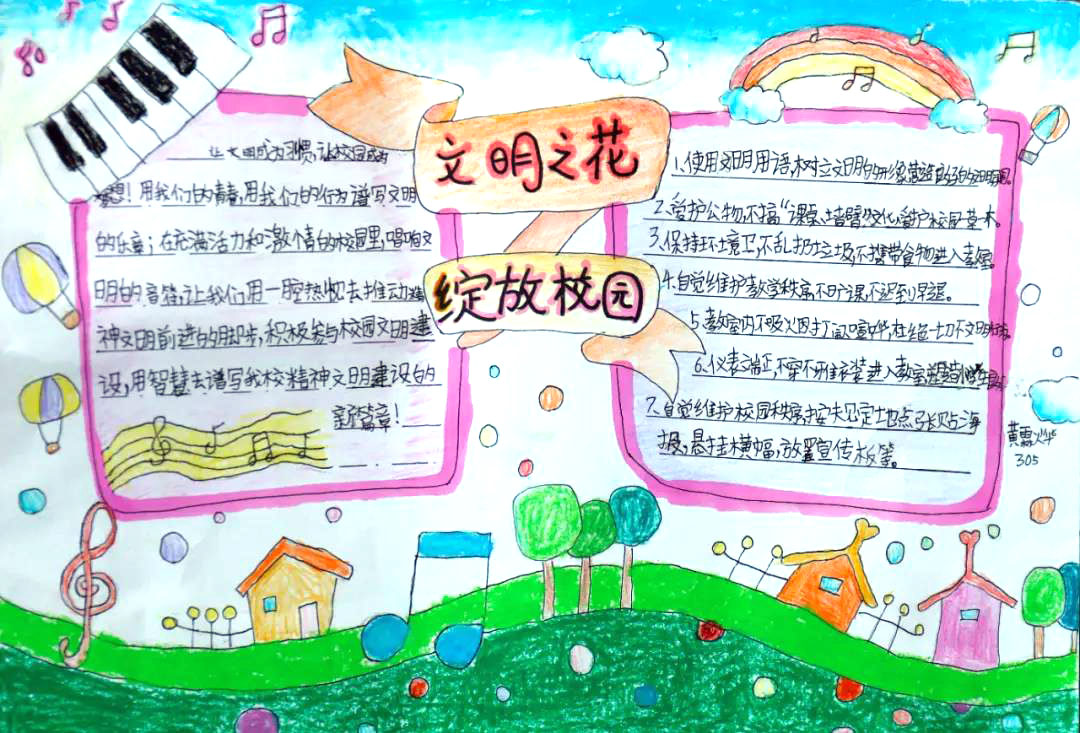 文明之花
绽放校园
让文明成为习惯,让校园成为
梦想!用我们的青春,用我们的行为谱写文明
的乐章;在充满活力和激情的校园里,唱响文
明的音符;让我们用一腔热忱去推动精
神文明前进的脚步,积极参与校园文明建
设,用智慧去谱写我校精神文明建设的
新篇章!
1.使用文明用语,树立文明的形象,营造
2.爱护公物,不搞“课桌、墙壁”文化,爱护校园草木。
3.保持环境卫,不乱扔垃圾,不携带食物进入教室
4.自觉维护教学秩序,不旷课,不迟到,早退。
5.教室内不吸烟,打闹,喧哗,杜绝一切不文明
6.仪表端正,不穿不雅衣装进入教室
7.自觉维护校园秩序,按规定地点张贴海
报,悬挂横幅,放置宣传板等。
305